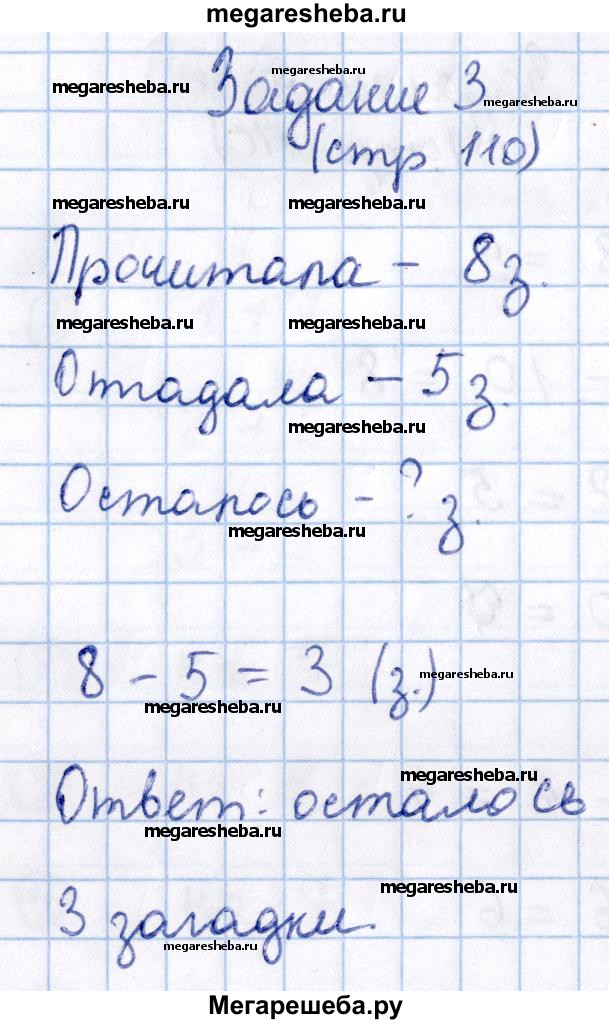 megaresheba.ru
megaresheba.ru
megaresheba.ru
Задание 3
megaresheba.ru
(стр. 110)
megaresheba.ru megaresheba.ru
Прочитала - 8 з.
megaresheba.ru megaresheba.ru
Отгадала - 5 з.
megaresheba.ru
Осталось - ? з.
megaresheba.ru
8 - 5 = 3 (з.)
megaresheba.ru
megaresheba.ru
megaresheba.ru
Ответ: осталось
megaresheba.ru
megaresheba.ru
3 загадки.
megaresheba.ru
Мегарешеба.ру